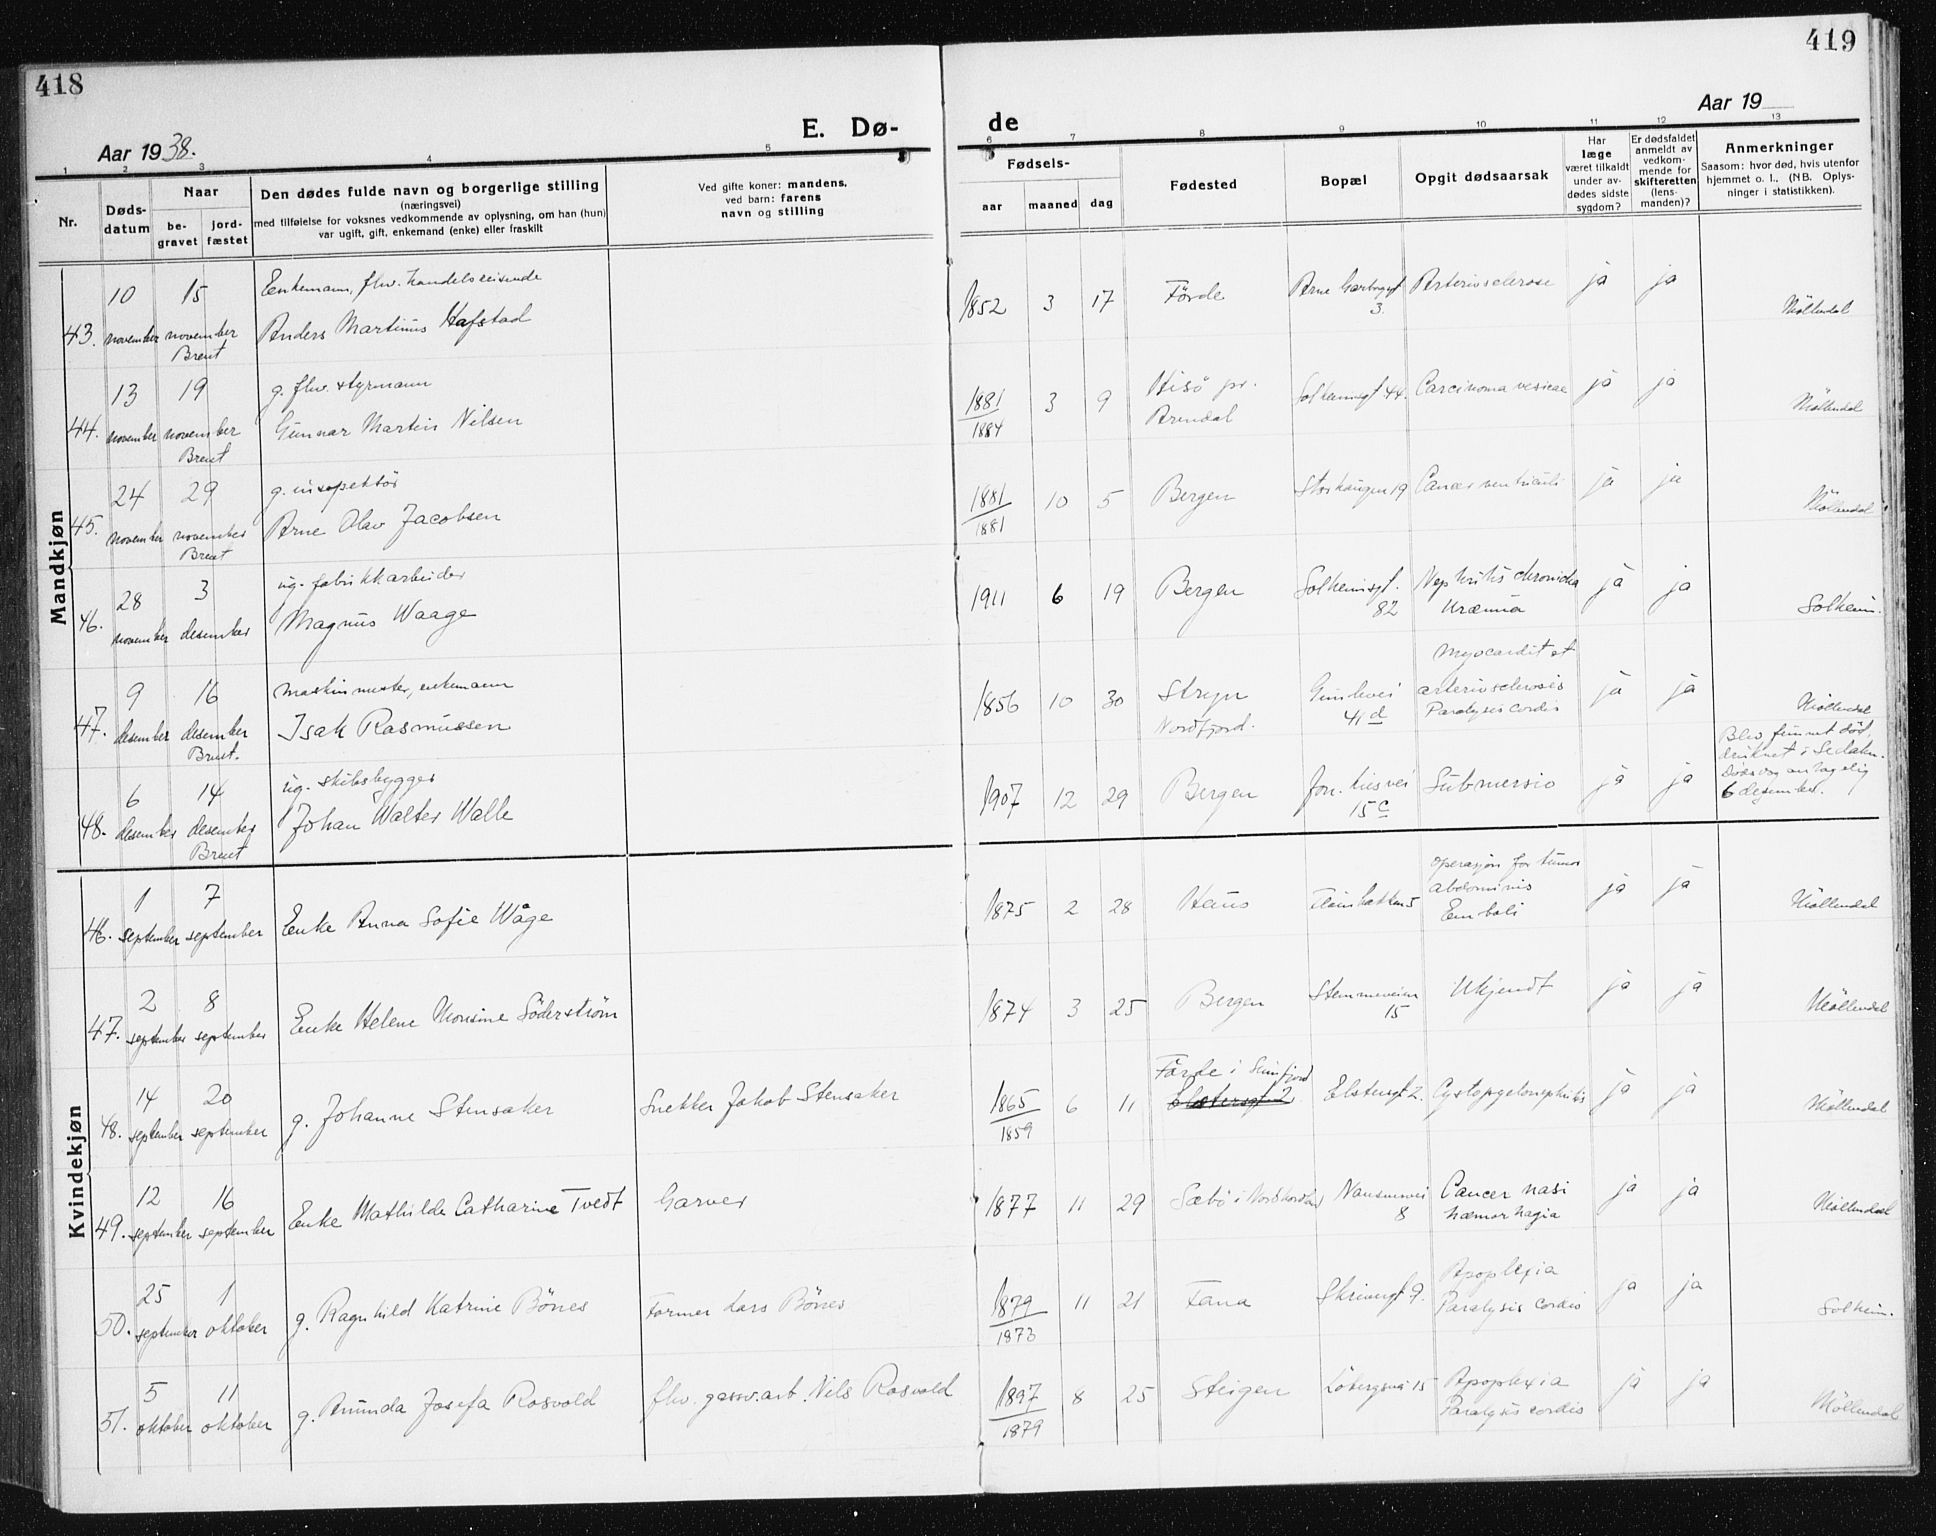 418
419
Aar 1938.
E. Dø-
de
Aar 19
1 2 3 4 5 6 7 8 9 10 11 12 13
Nr.
Døds-
datum
Naar
be-
gravet
jord-
fæstet
Den dødes fulde navn og borgerlige stilling
(næringsvei)
med tilføielse for voksnes vedkommende av oplysning, om han (hun)
var ugift, gift, enkemand (enke) eller fraskilt
Ved gifte koner: mandens,
ved barn: farens
navn og stilling
Fødsels-
aar maaned dag
Fødested
Bopæl
Opgit dødsaarsak
Har
læge
været tilkaldt
under av-
dødes sidste
sygdom?
Er dødsfaldet
anmeldt av
vedkom-
mende for
skifteretten
(lens-
manden)?
Anmerkninger
Saasom: hvor død, hvis utenfor
hjemmet o. l., (NB. Oplys-
ninger i statistikken).
Mandkjøn
43. 10 november 15 november Brent
Enkemann, fhv. handelsreisende
Anders Martinus Hafstad
1852 3 17 Förde Arne Garborgsgt 3. Arteriosclerose ja ja Möllendal
44. 13 november 19 november Brent
g. fhv. styrmann
Gunnar Martin Nilsen
1881/1884 3 9 Hisö pr. Arendal Solheimsgt 44. Carcinoma vesicae ja ja Möllendal
45. 24 november 29 november Brent
g. inspektör
Arne Olav Jacobsen
1881/1881 10 5 Bergen Storhaugen 19 Cancer ventriculi ja ja Möllendal
46. 28 november 3 desember
ug. fabrikkarbeider
Magnus Waage
1911 6 19 Bergen Solheimsgt. 82 Nephritis chronicha Uræmia ja ja Solheim.
47. 9 desember 16 desember Brent.
maskinmester, enkemann
Isak Rasmussen
1856 10 30 Stryn Nordfjord. Gimlevei 41 d Myocardit et arteriosclerosis Paralysis cordis ja ja Möllendal
48. 6 desember 14 desember Brent
ug. skibsbygger
Johan Walter Walle
1907 12 29 Bergen 15 c Submersio ja ja
Blev funnet död,
druknet i
Dödsdag antagelig
6 desember.
Kvindekjøn
46. 1 september 7 september
Enke Anna Sofie Wåge
1875 2 28 Haus operasjon for tumor abdominis Emboli ja ja Möllendal
47. 2 september 8 september
Enke Helene Monsine Söderström
1874 3 25 Bergen Stemmeveien 15 Ukjendt ja ja Möllendal
48. 14 september 20 september
g. Johanne Stensaker
Snekker Jakob Stensaker
1865/1859 6 11 Förde i Sunnfjord Elstersgt 2 Elstersgt 2. Cystopyelonephritis ja ja Möllendal
49. 12 september 16 september
Enke Mathilde Catharine Tvedt
Garver
1877 11 29 Sæbö i Nordhordland Nansensvei 8 Cancer nasi hæmorhagia ja ja Möllendal
50. 25 september 1 oktober
g. Ragnhild Katrine Bönes
Former Lars Bönes
1879/1873 11 21 Fana Skrivergt 9. Apoplexia Paralysis cordis ja ja Solheim.
51. 5 oktober 11 oktober
g. Amunda Josefa Rosvold
fhv. gassv.arb. Nils Rosvold
1897/1879 8 25 Steigen Löbergsvei 15 Apoplexia Paralysis cordis ja ja Möllendal